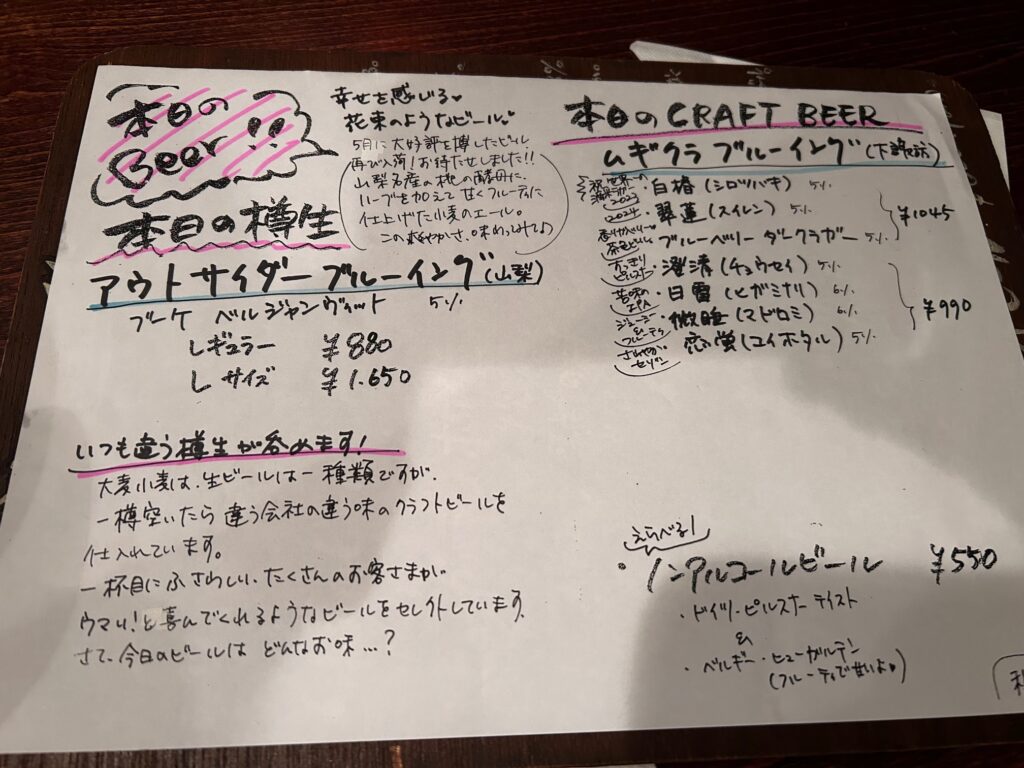 本日の
Beer!!
幸せを感じる♥
花束のようなビール
5月に大好評を博したビール
再び入荷!お待たせしました!!
山梨名産の桃の酵母に、
ハーブを加えて甘くフルーティに
仕上げた小麦のエール。
この軽やかさ、味わってみて♪
本日の樽生
アウトサイダーブルーイング(山梨)
ブーケ ベルジャンヴィット 5%
レギュラー ¥880
Lサイズ ¥1.650
いつも違う樽生が呑めます!
大麦小麦は、生ビールは一種類ですが、
一樽空いたら違う会社の違う味のクラフトビールを
仕入れています。
一杯目にふさわしい、たくさんのお客さまが
ウマい!と喜んでくれるようなビールをセレクトしています。
さて、今日のビールはどんなお味…?
本日のCRAFT BEER
ムギクラ ブルーイング(下諏訪)
2023
・白椿(シロツバキ) 5%
2024
・翠蓮(スイレン) 5%
ブルーベリー ダークラガー 5%
¥1045
すっきり
ピルスナー
・澄清(チョウセイ) 5%
苦味の
IPA
・日雷(ヒガミナリ) 6%
ジューシー
&
フルーティ
・微睡(マドロミ) 6%
さわやか
セゾン
・恋蛍(コイホタル) 5%
¥990
えらべる!
・ノンアルコールビール ¥550
・ドイツ・ピルスナーテイスト
&
・ベルギー・ヒューガルデン
(フルーティで甘いよ♥)